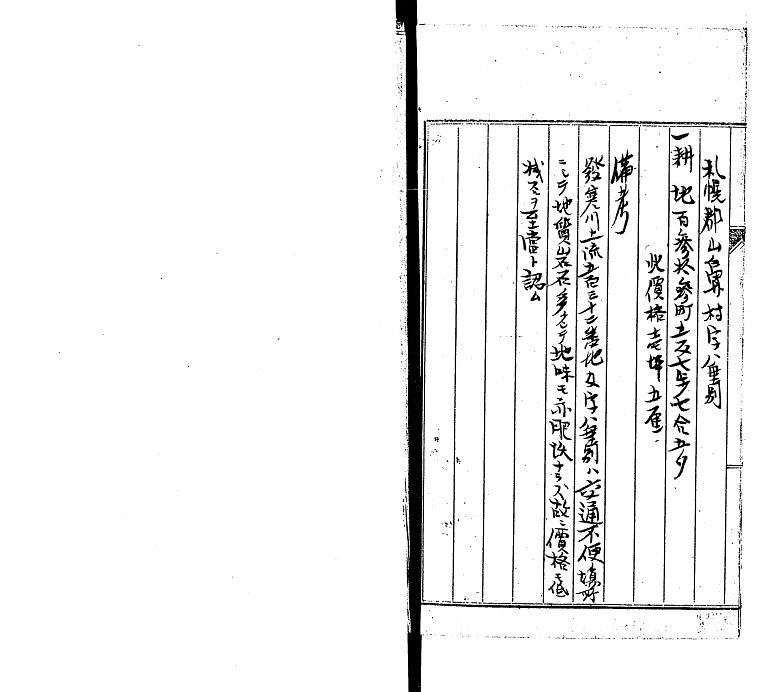 札幌郡山鼻村字八垂別
一耕地百参拾参町五反七歩七合五夕
此價格壱坪五厘
備考
發寒川上流五百三十二番地及字八垂別ハ交通不便
ニシテ地質岩石多クシテ地味モ亦肥沃ナラズ故ニ價格モ低
減スルヲ至當ト認ム